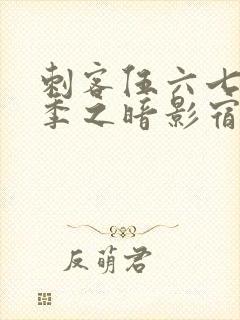 刺客伍六七
季之暗影宿
反萌君